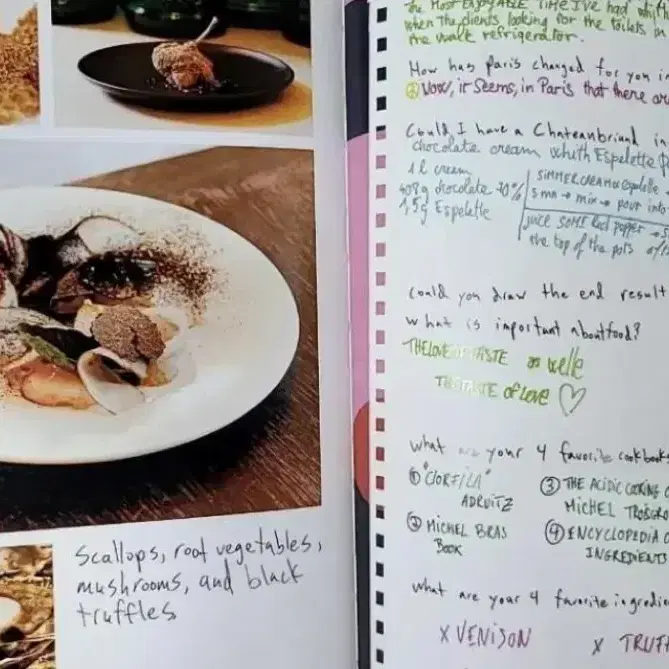 scallops, root vegetables,
mushrooms, and black
truffles
THE MOST ENJOYABLE TIME I've had
when the clients looking for the toilets in
the walk refrigerator.
How has paris changed for you in
Wow, it Seems, in Paris that there are
Could I have a Chateaubriand in
chocolate cream whith Espelette
1 l cream
408g chocolate 70%
1,5g Espelette
SIMMER CREAM espelette
5 mn → mix → pour into
juice SOME Red Pepper →
the top of the pots
could you draw the end result
what is important about food?
THE LOVE OF TASTE as welle
THE TASTE of Love ♡
what are your 4 favorite cookbooks
① "CIORFILA"
ADRUITZ
② MICHEL BRAS
BOOK
③ THE ACIDIC COOKING
MICHEL TROISGRO
④ ENCYCLOPEDIA
INGREDIENTS
what are your 4 favorite ingredie
x VENISON
x TRUFF